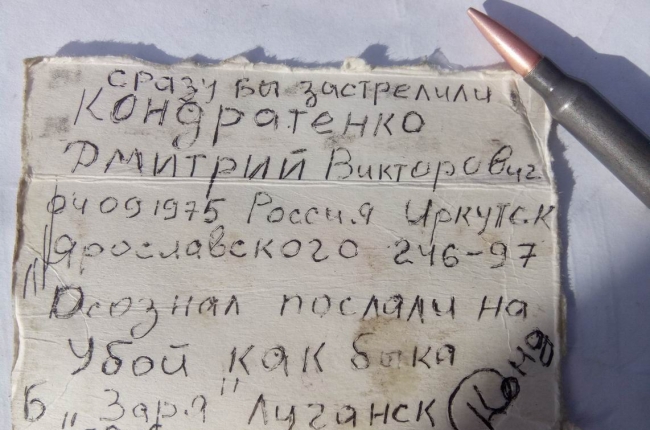 сразу бы застрелили
Кондратенко
Дмитрий Викторович
04 09 1975 Россия Иркутск
Ярославского 246-97
"Осознал послали на
Убой как быка
Б "Заря" Луганск Конд